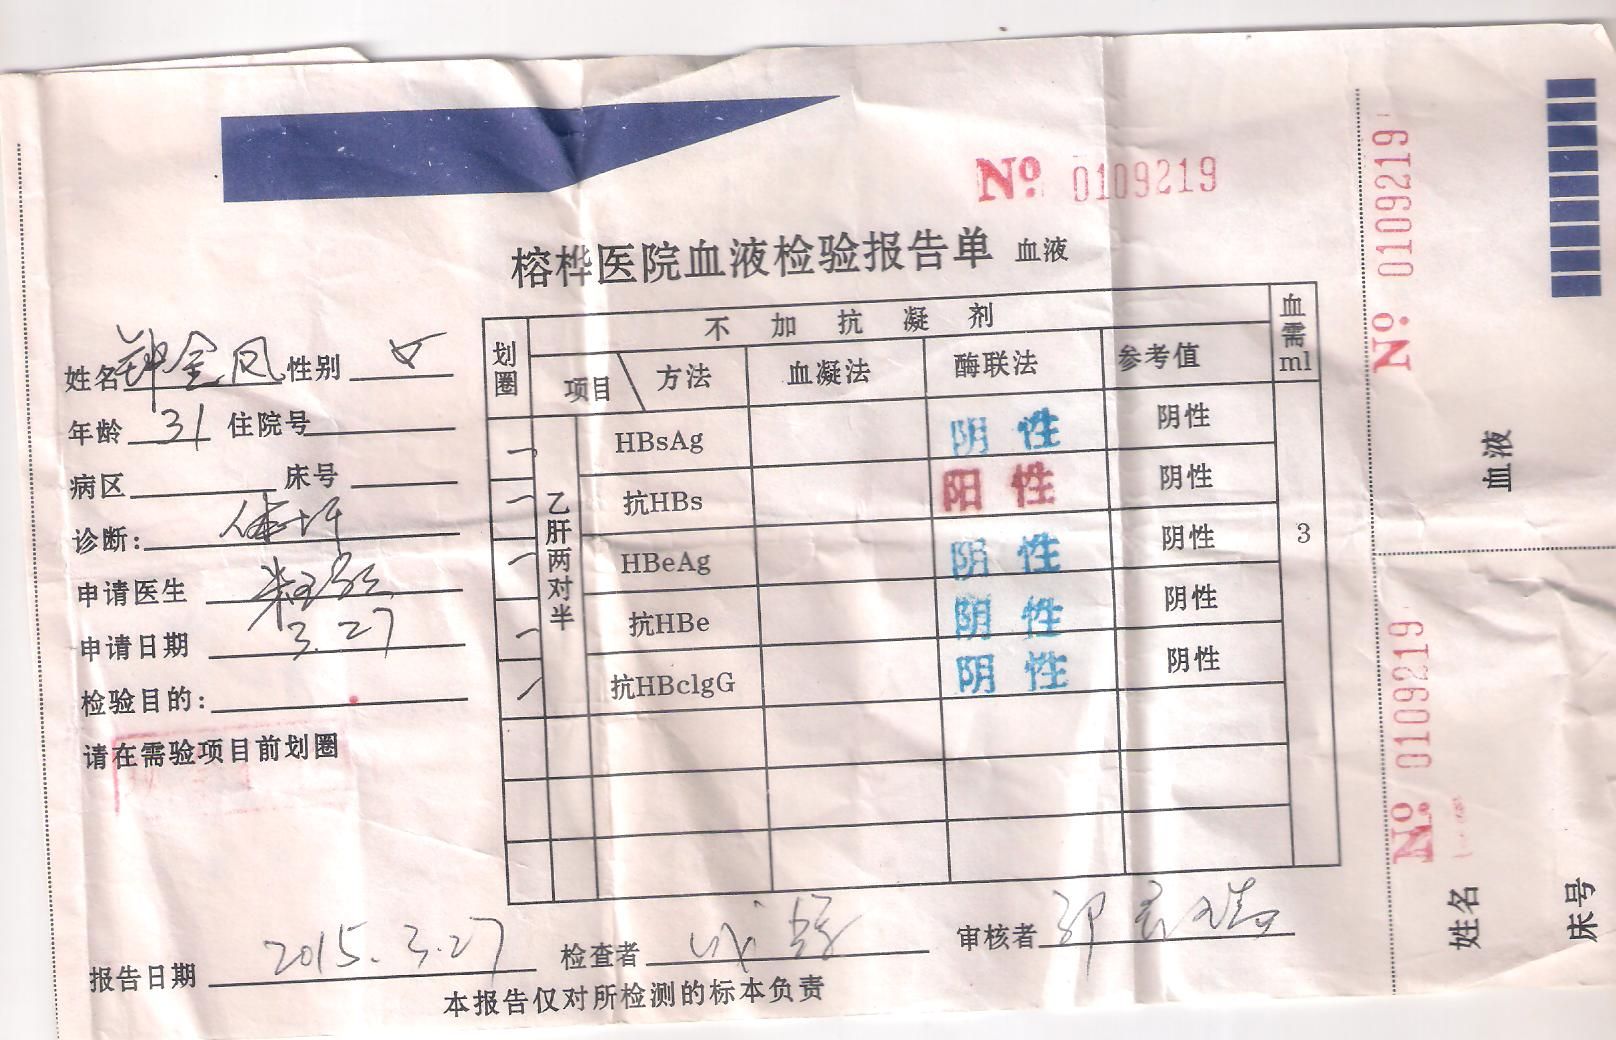 No 0109219
榕桦医院血液检验报告单 血液
姓名 钟金凤 性别 女
年龄 31 住院号
病区 床号
诊断: 体检
申请医生
申请日期 3.27
检验目的:
请在需验项目前划圈
划圈 不加抗凝剂 血需ml
项目 方法 血凝法 酶联法 参考值
乙肝两对半
HBsAg 阴性 阴性
抗HBs 阳性 阴性
HBeAg 阴性 阴性
抗HBe 阴性 阴性
抗HBclgG 阴性 阴性
3
报告日期 2015.3.27 检查者 审核者
本报告仅对所检测的标本负责
No 0109219
血液
No 0109219
姓名
床号